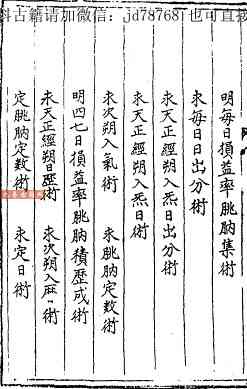 料古籍请加微信：jd78768
也可直接
明每日損益率朓朒集術
求每日日出分術
求天正經朔入炁日出分術
求天正經朔入炁日術
求次朔入氣術　求朓朒定數術
明四七日損益率朓朒積歷成術
求天正經朔日歷術　求次朔入厤術
定朓朒定數術　求定日術